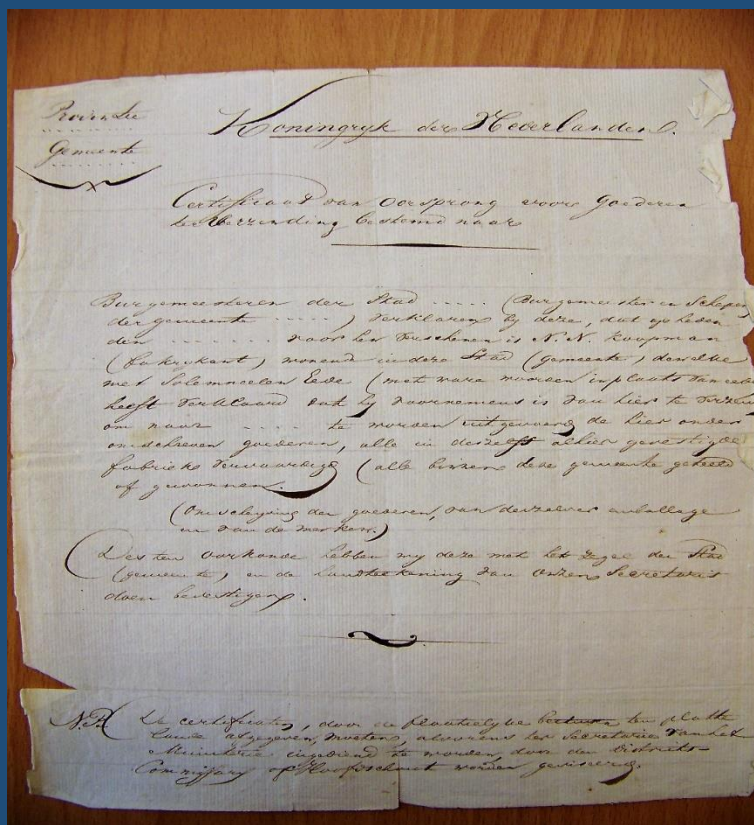 Provintie
.......
Gemeente
.......
Koningryk der Nederlanden.
Certificaat van oorsprong voor Goederen
ter verzending bestemd naar
Burgemeesteren der Stad ..... (Burgemeester en Schepen
der gemeente .....) verklaren by deze, dat op heden
den ........ voor hen verschenen is N.N. Koopman
(fabrykant) wonend in deze Stad (gemeente), dewelke
met Solemneelen Eede (met ware woorden in plaats van eede
heeft verklaard dat hy voornemens is van hier te verzen
om naar ..... te worden uitgevoerd de hier onder
omschreven goederen, alle in deszelfs alhier gevestigde
fabriek vervaardigd (alle binnen deze gemeente geteeld
of gewonnen.
(Omschryving der goederen, van derzelver emballage
en van de merken.)
Des ten oorkonde hebben wy deze met het zegel der Stad
(gemeente) en de handteekening van onzen Secretaris
doen bevestigen.
N.B. De certificaten, door de plaatselyke besturen ten platte
lande afgegeven, moeten, alvorens ter Secretarie van het
Ministerie ingediend te worden, door den Districts
Commissary of Hoofdschout worden geviseerd.